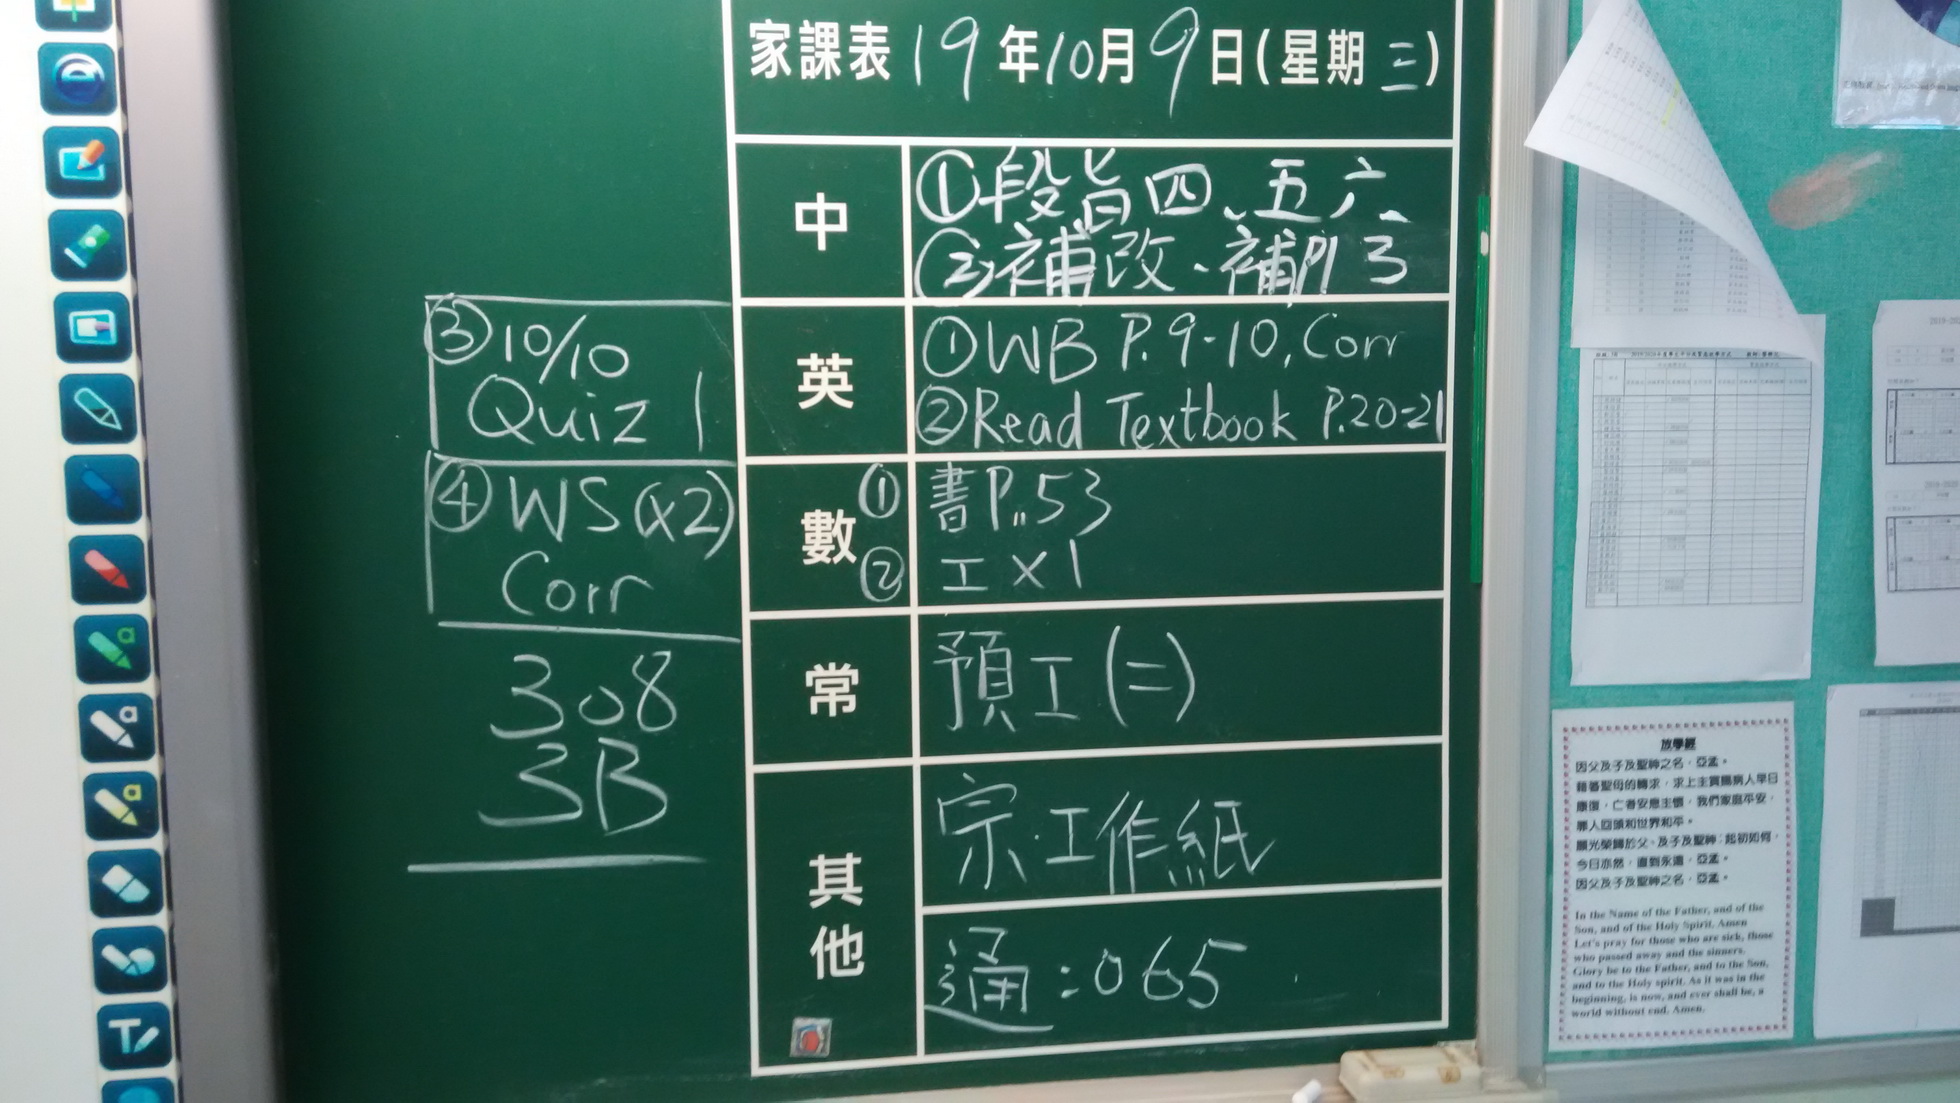 家課表 19年10月9日(星期三)
中
①段旨四、五六
②補改、補P13
英
①WB P.9-10, Corr
②Read Textbook P.20-21
③10/10
Quiz 1
④WS(x2)
Corr
數
①書P.53
②工x1
常
預工(二)
其他
宗.工作紙
通:065
308
3B
放學經
因父及子及聖神之名,亞孟。
藉著聖母的轉求,求上主賞賜病人早日
康復,亡者安息主懷,我們家庭平安,
罪人回頭和世界和平。
願光榮歸於父、及子及聖神;起初如何,
今日亦然,直到永遠,亞孟。
因父及子及聖神之名,亞孟。
In the Name of the Father, and of the
Son, and of the Holy Spirit. Amen
Let's pray for those who are sick, those
who passed away and the sinners.
Glory be to the Father, and to the Son,
and to the Holy spirit. As it was in the
beginning, is now, and ever shall be, a
world without end. Amen.